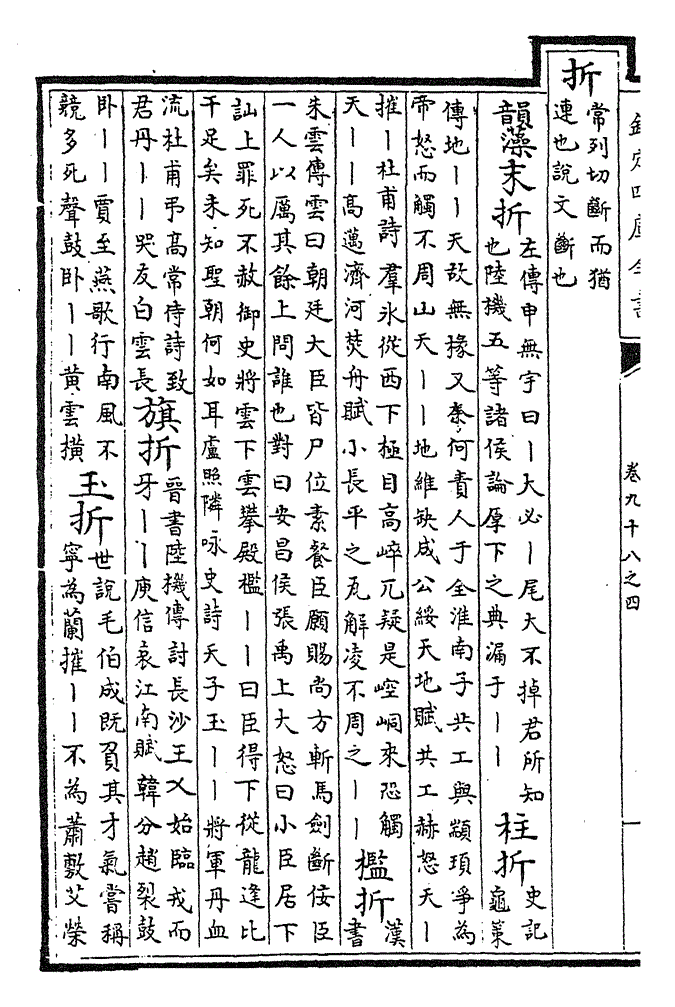 欽定四庫全書
卷九十八之四
一
折
常列切斷而猶
連也說文斷也
韻藻末折
左傳申無宇曰｜大必｜尾大不掉君所知
也陸機五等諸侯論厚下之典漏于｜｜
柱折
史記
龜策
傳地｜｜天故無椽又柰何責人于全淮南子共工與顓頊爭為
帝怒而觸不周山天｜｜地維缺成公綏天地賦共工赫怒天｜
摧｜杜甫詩羣氷從西下極目高崒兀疑是崆峒來恐觸
天｜｜高邁濟河焚舟賦小長平之瓦解凌不周之｜｜
檻折
漢
書
朱雲傳雲曰朝廷大臣皆尸位素餐臣願賜尚方斬馬劍斷佞臣
一人以厲其餘上問誰也對曰安昌侯張禹上大怒曰小臣居下
訕上罪死不赦御史將雲下雲攀殿檻｜｜曰臣得下從龍逄比
干足矣未知聖朝何如耳盧照隣咏史詩天子玉｜｜將軍丹血
流杜甫弔高常侍詩致
君丹｜｜哭友白雲長
旗折
晉書陸機傳討長沙王乂始臨戎而
牙｜｜庾信哀江南賦韓分趙裂鼓
卧｜｜賈至燕歌行南風不
競多死聲鼓卧｜｜黃雲橫
玉折
世說毛伯成既負其才氣嘗稱
寧為蘭摧｜｜不為蕭敷艾榮